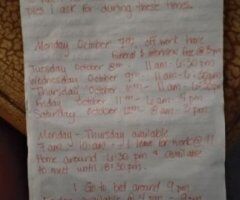 I ask for during these times.
Monday October 7th, off work have
funeral & service @ 3pm
Tuesday October 8th - 11am - 6:30pm
Wednesday October 9th - 11am - 6:30pm
Thursday October 10th - 11am - 6:30pm
Friday October 11th - 6am - 9pm
Saturday October 12th - 8am - 9pm
Monday - Thursday available
7am - 10am - I leave for work @ 11
Home around 6:30 pm & available
to meet until 8:30 pm
I go to bed around 9pm